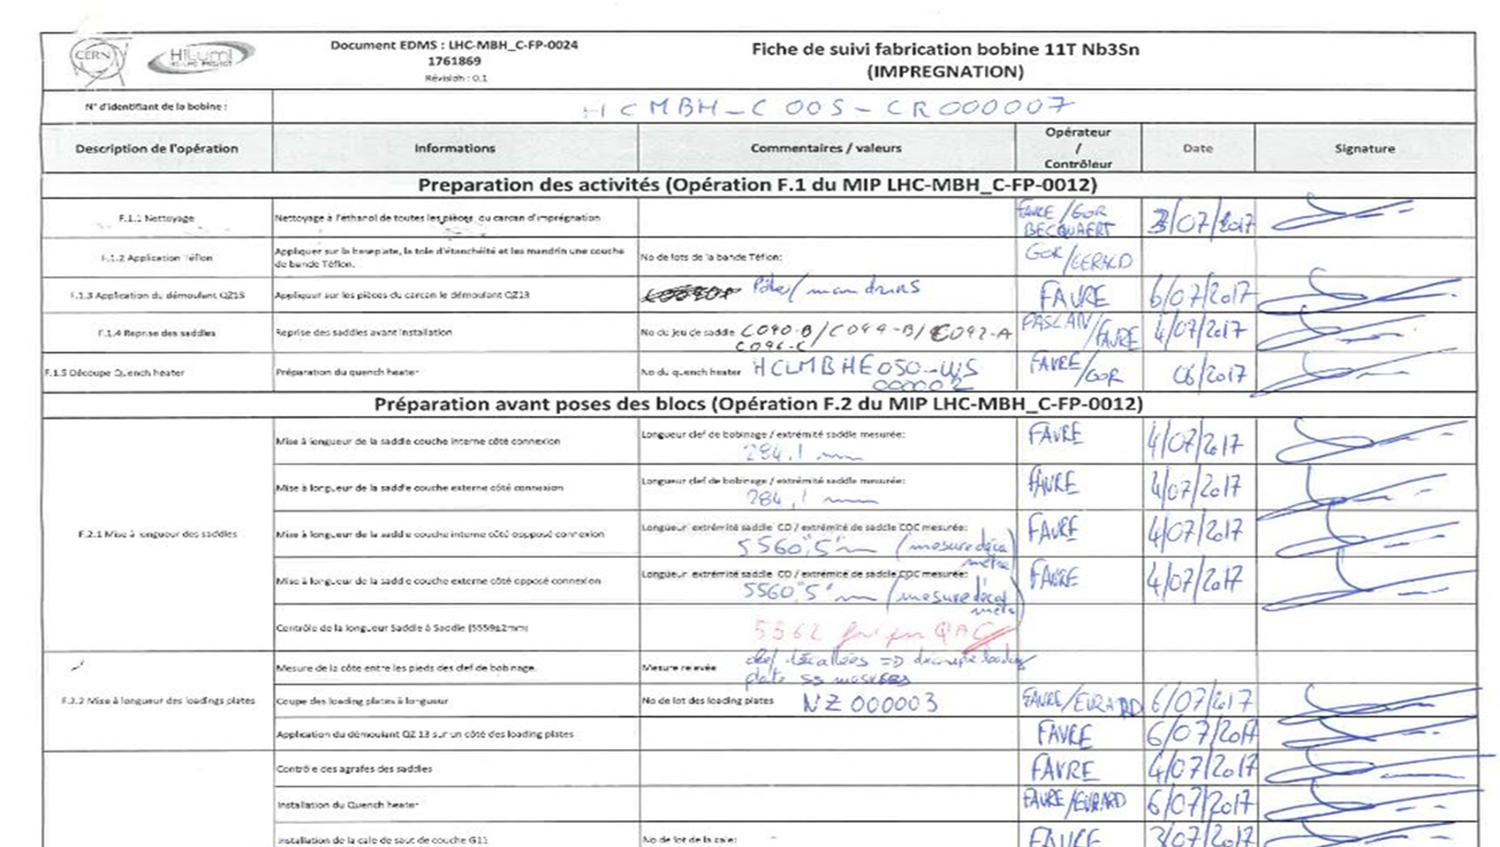 CERN
HiLumi
HL-LHC PROJECT
Document EDMS : LHC-MBH_C-FP-0024
1761869
Révision : 0.1
Fiche de suivi fabrication bobine 11T Nb3Sn
(IMPREGNATION)
N° d'identifiant de la bobine :
HCMBH_C005-CR000007
Description de l'opération
Informations
Commentaires / valeurs
Opérateur
/
Contrôleur
Date
Signature
Preparation des activités (Opération F.1 du MIP LHC-MBH_C-FP-0012)
F.1.1 Nettoyage
Nettoyage à l'éthanol de toutes les pièces du carcan d'imprégnation
FAVRE/GOR
BECQUAERT
3/07/2017
F.1.2 Application Téflon
Appliquer sur la baseplate, la tole d'étanchéité et les mandrin une couche
de bande Téflon.
No de lots de la bande Téflon:
GOR/GERALD
F.1.3 Application du démoulant QZ13
Appliquer sur les pièces du carcan le démoulant QZ13
Pôles/mandrins
FAVRE
6/07/2017
F.1.4 Reprise des saddles
Reprise des saddles avant installation
No du jeu de saddle C090-B/C094-B/C092-A
C096-C
PASLAN/
FAVRE
4/07/2017
F.1.5 Découpe Quench heater
Préparation du quench heater
No du quench heater HCLMBHE050-WS
000002
FAVRE
/GOR
06/2017
Préparation avant poses des blocs (Opération F.2 du MIP LHC-MBH_C-FP-0012)
F.2.1 Mise à longueur des saddles
Mise à longueur de la saddle couche interne côté connexion
Longueur clef de bobinage / extrémité saddle mesurée:
284,1 mm
FAVRE
4/07/2017
Mise à longueur de la saddle couche externe côté connexion
Longueur clef de bobinage / extrémité saddle mesurée:
284,1 mm
FAVRE
4/07/2017
Mise à longueur de la saddle couche interne côté oppposé connexion
Longueur extrémité saddle CD / extrémité de saddle COC mesurée:
5560,5 mm (mesure déca
mètre)
FAVRE
4/07/2017
Mise à longueur de la saddle couche externe côté opposé connexion
Longueur extrémité saddle CD / extrémité de saddle COC mesurée:
5560,5 mm (mesure déca
mètre)
FAVRE
4/07/2017
Contrôle de la longueur Saddle à Saddle (5559±2mm)
5562
F.2.2 Mise à longueur des loadings plates
Mesure de la côte entre les pieds des clef de bobinage.
Mesure relevée
clef décallées => découpe loading
plate
Coupe des loading plates à longueur
No de lot des loading plates NZ000003
FAVRE/EVRARD
6/07/2017
Application du démoulant QZ 13 sur un côté des loading plates
FAVRE
6/07/2017
Contrôle des agrafes des saddles
FAVRE
4/07/2017
Installation du Quench heater
FAVRE/EVRARD
6/07/2017
Installation de la cale de saut de couche G11
No de lot de la cale:
FAVRE
3/07/2017